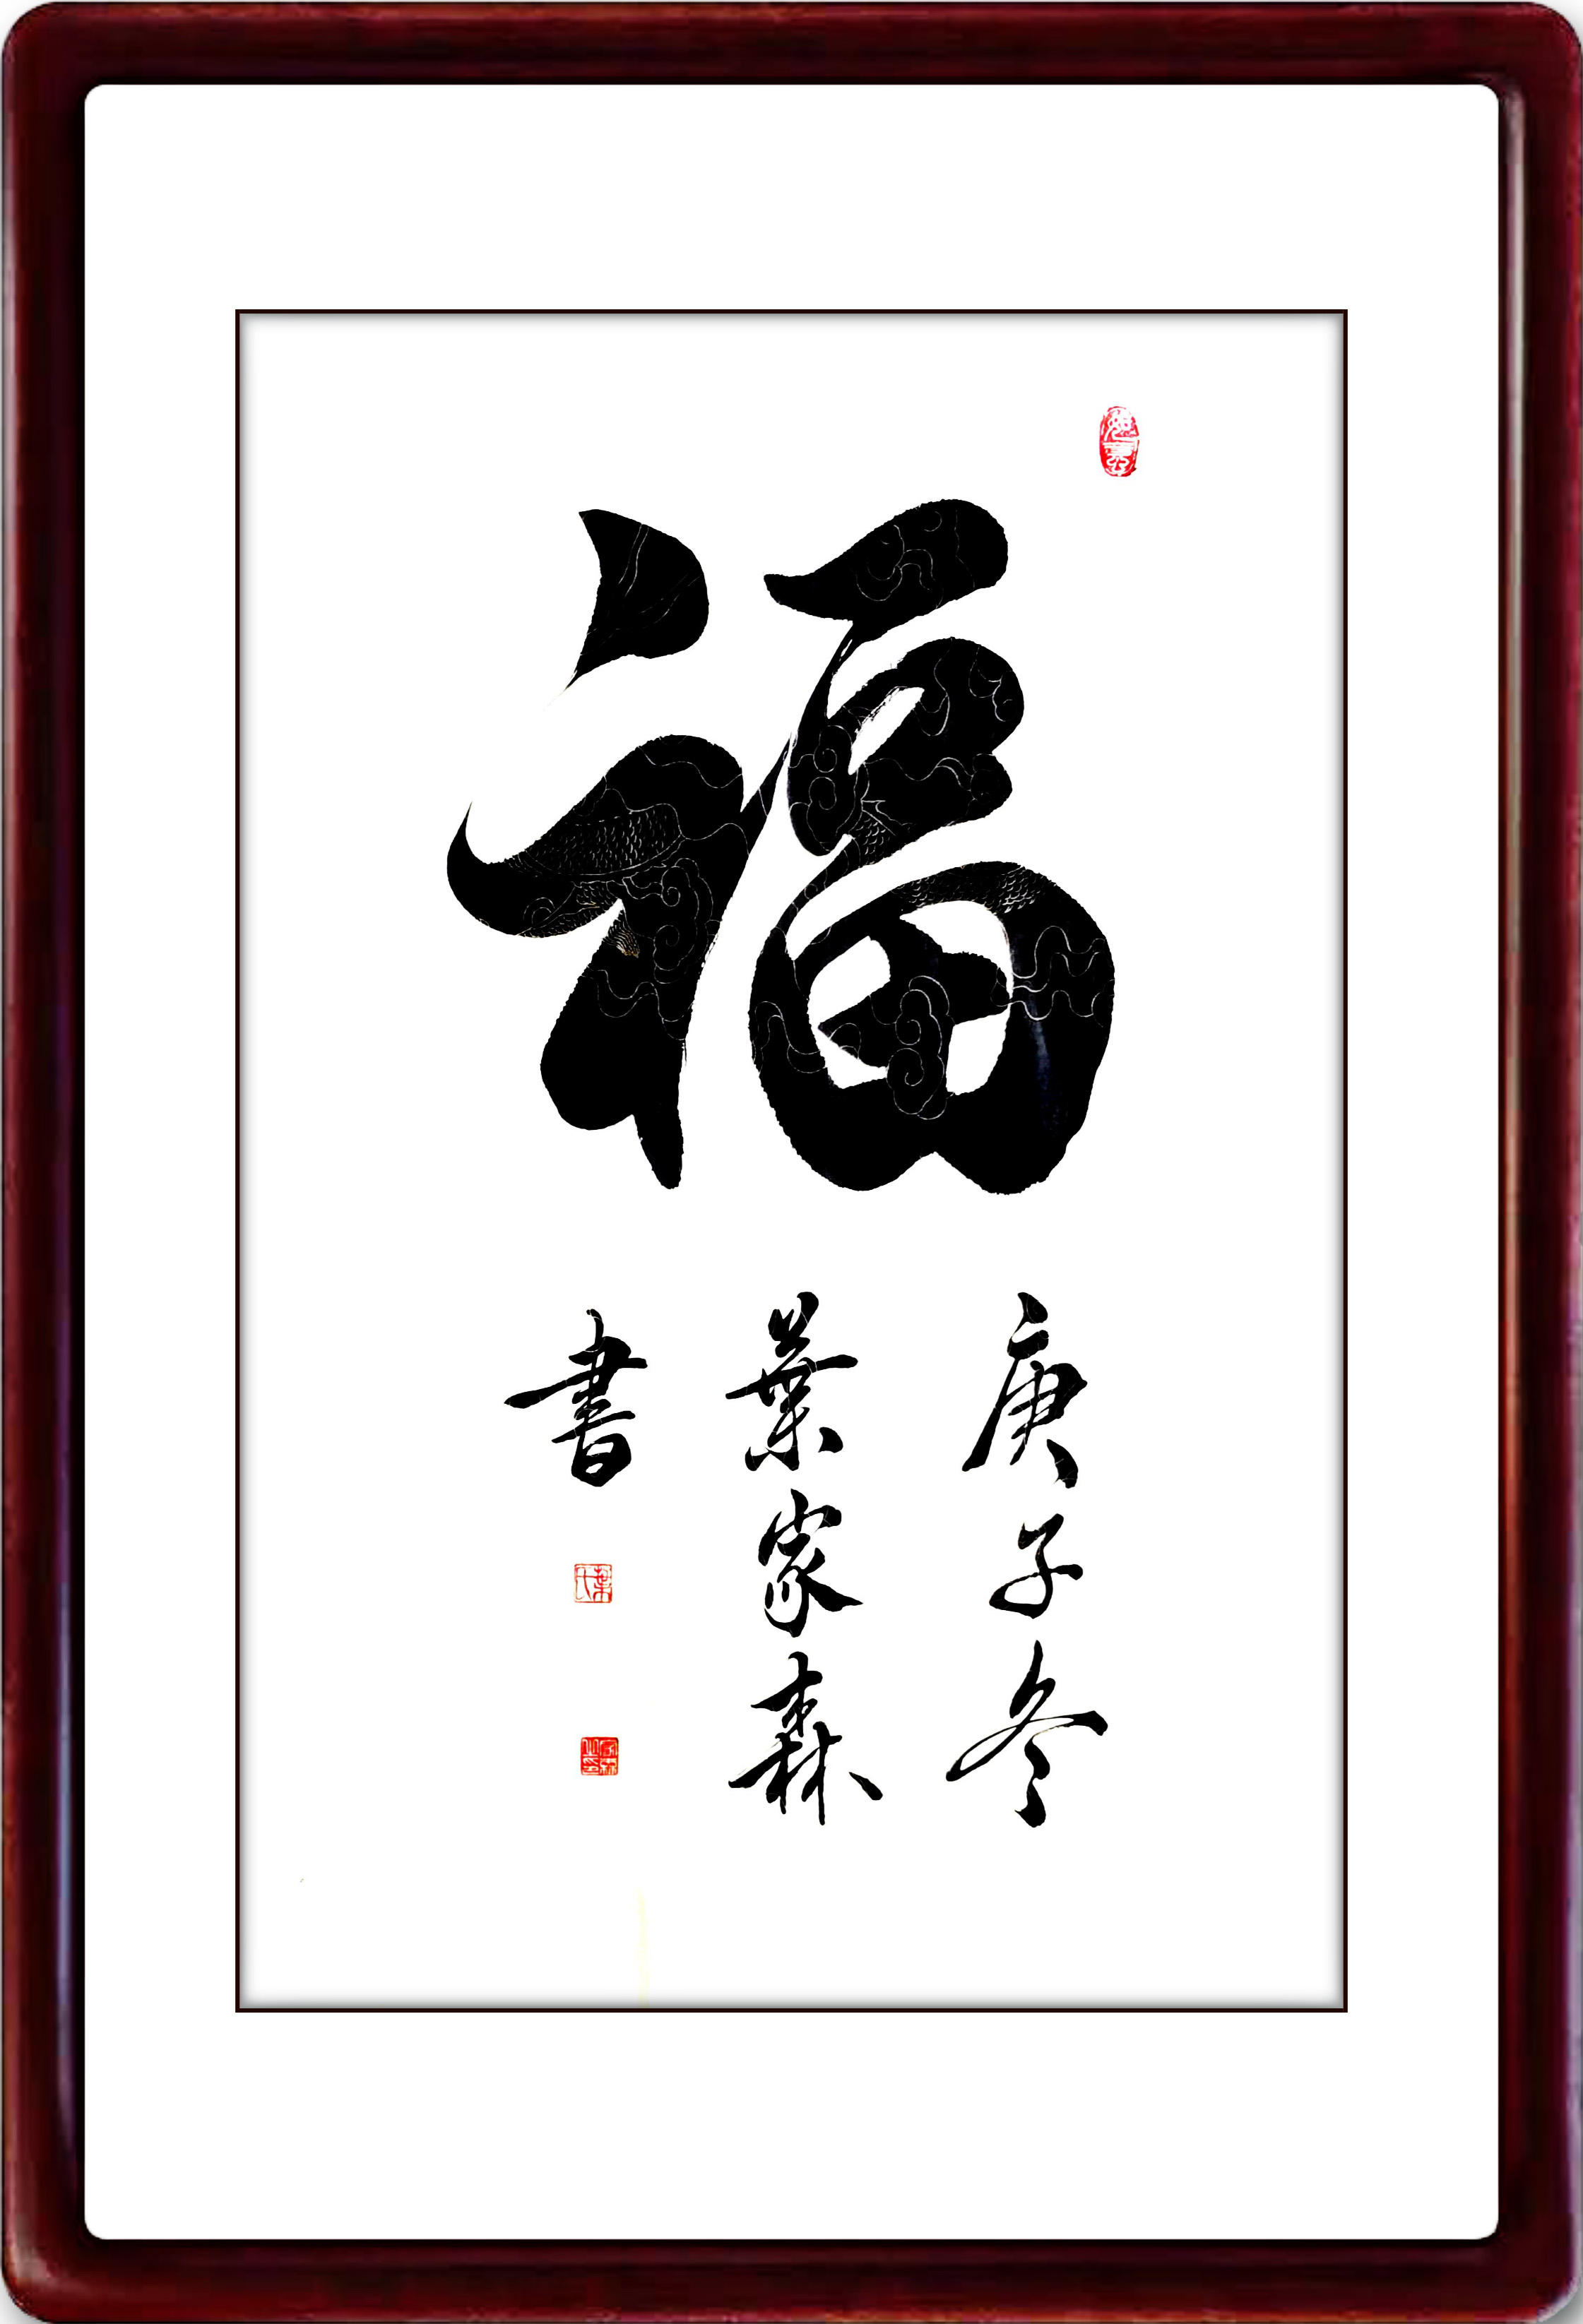 福
庚子冬
葉家森
書
葉氏